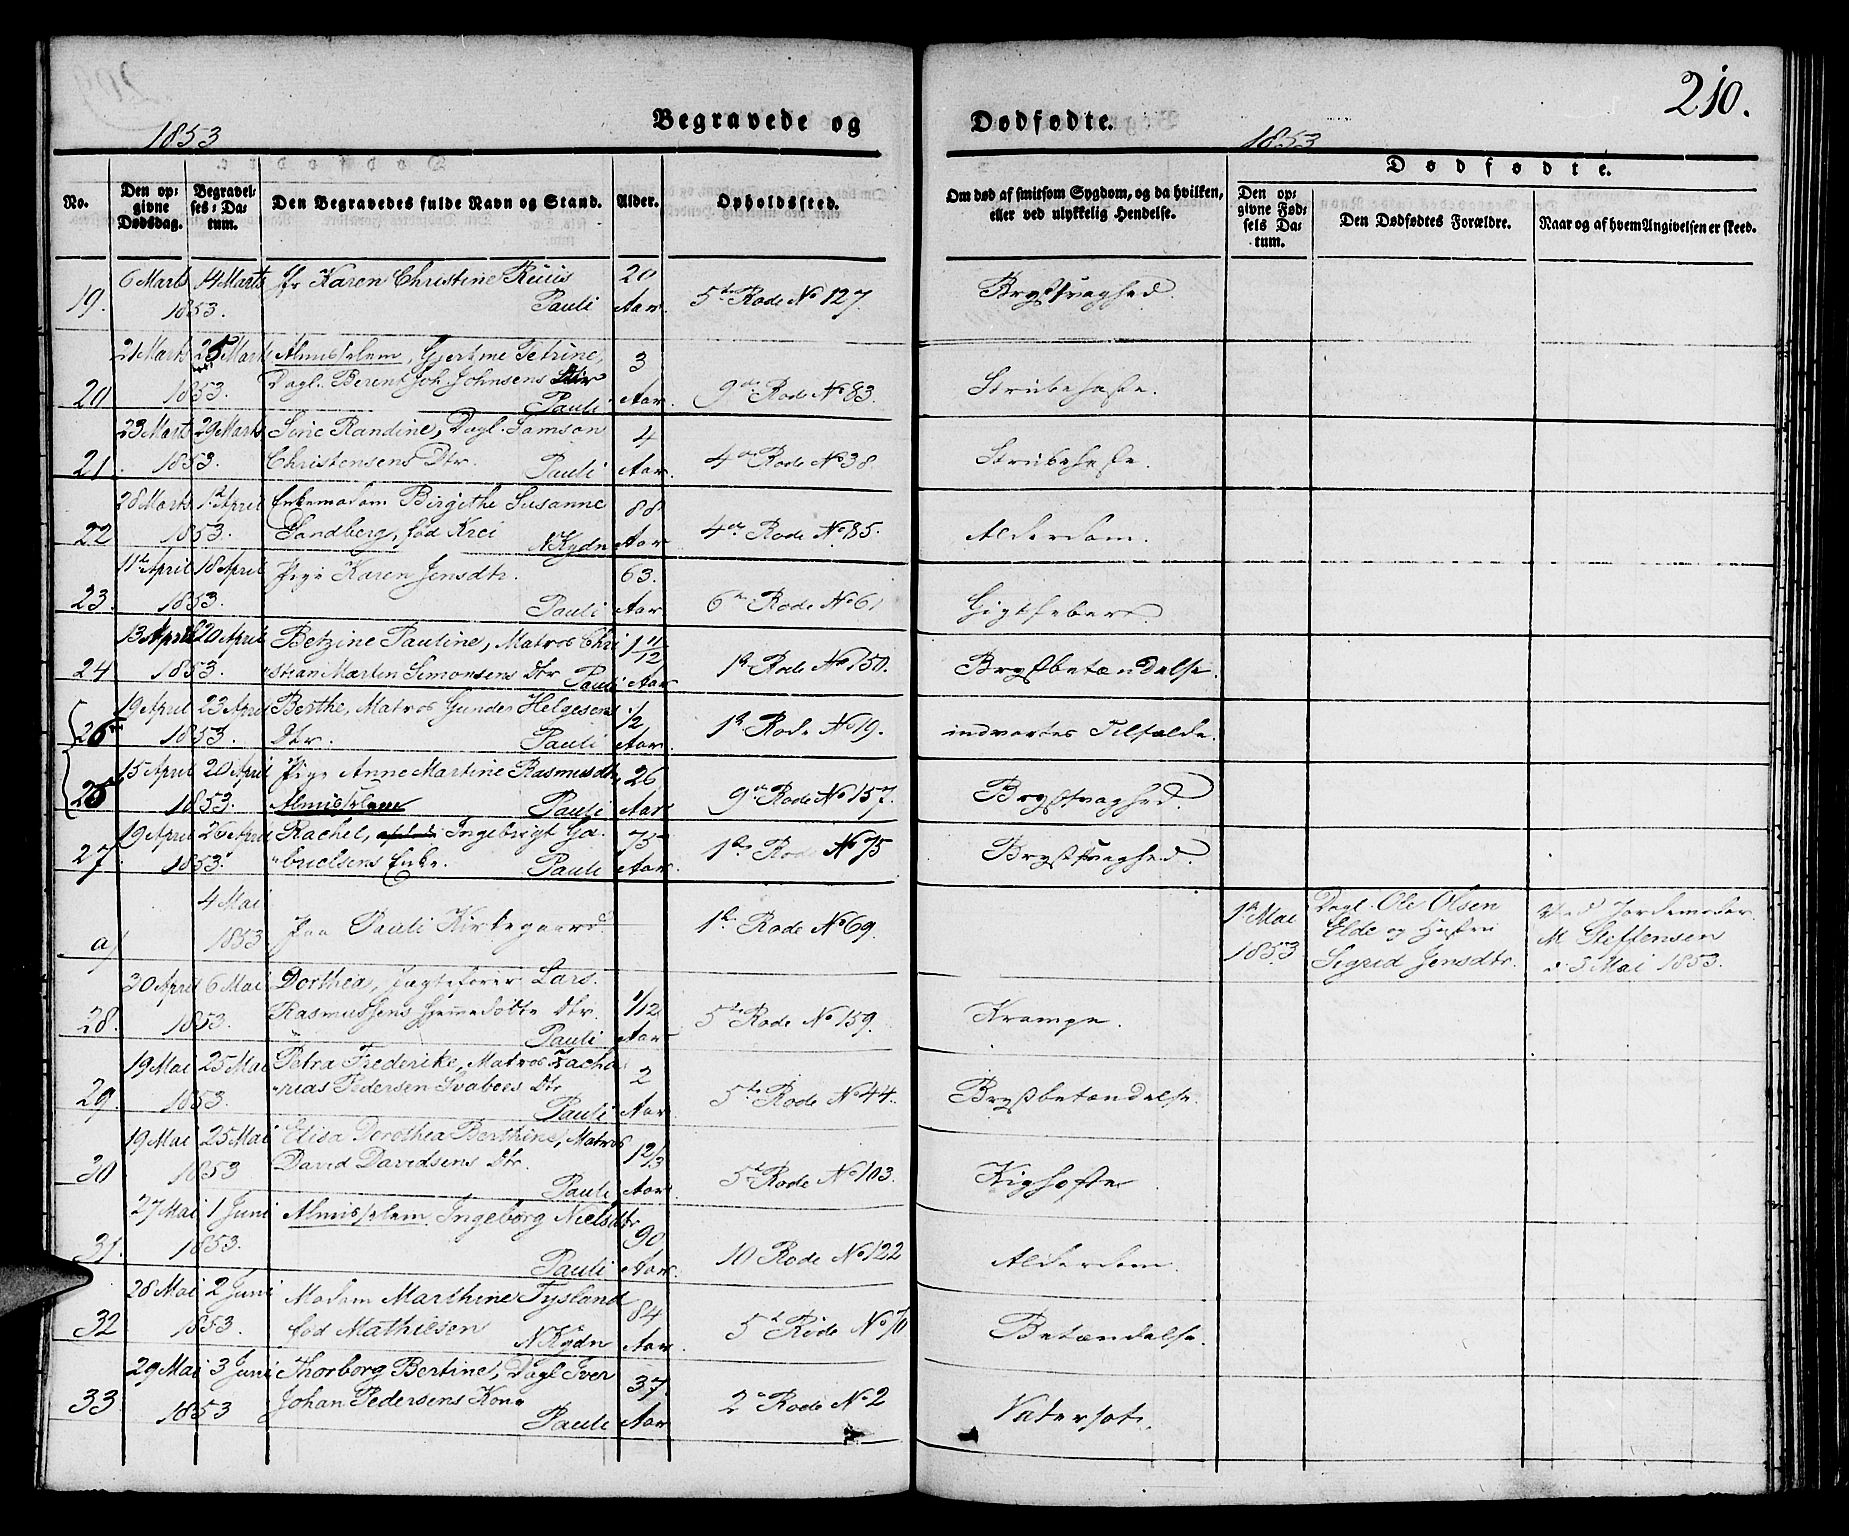 210.
1853
Begravede og
Dødfødte.
1853
No.
Den opgivne Dødsdag.
Begravelses-Datum.
Den Begravedes fulde Navn og Stand.
Alder.
Opholdssted.
Om død af smitsom Sygdom, og da hvilken, eller ved ulykkelig Hendelse.
Dødfødte.
Den opgivne Fødsels Datum.
Den Dødfødtes Forældre.
Naar og af hvem Angivelsen er skeed.
6 Marts 14 Marts Karen Christine 20
19. 1853. Pauli Aar. 5te Rode No 127. Brystsvaghed.
21 Marts 25 Marts Almisselem, Gjertine Petrine, 3
Dagl. Berent Joh. Johnsens Dtr
20 1853. Pauli Aar. 9de Rode No 83. Strubehoste.
23 Marts 29 Marts Serie Randine, Dagl. Samson 4
21. 1853. Christensens Dtr. Pauli Aar. 4de Rode No 38. Strubehoste.
28 Marts 1st April Enkemadam Birgithe Susanne 88
22 1853. Sandberg, fød Krei N.Kgdn Aar 4de Rode No 85. Alderdom.
11te April 18 April Pige Karen Jensdtr. 63.
23. 1853. Pauli Aar 6te Rode No 61 Gigtfeber
13 April 20 April Betzine Pauline, Matros Chri 1 11/12
24 1853. "stian Martin Simonsens Dtr Pauli Aar 1ste Rode No 150. Brystbetændelse.
19 April 23 April Berthe, Matros Gunder Helgesens 1/2
26 1853. Dtr. Pauli Aar. 1ste Rode No 19. indvortes Tilfælde.
15 April 20 April Pige Anne Martine Rasmusdtr 26
25 1853. Almisselem Pauli Aar 9de Rode No 157. Brystsvaghed.
19 April 26 April Rachel, Ingebrigt Ga- 75
27. 1853. "brielsens Enke. Pauli Aar. 1ste Rode No 75 Brystsvaghed.
4 Mai Dagl. Ole Olsen
a) 1853 Paa Pauli Kirkegaard 1ste Rode No 69. 1ste Mai Elde og Hustru Jordemoder
1853 Sigrid Jensdtr. M Steffensen
d. 3 Mai 1853.
30 April 6 Mai Dorthea, Jagtefører Lars
28. 1853. Rasmussens hjemmedøbte Dtr. 1/12
Pauli Aar 5te Rode No 159. Krampe.
19 Mai 25 Mai Petra Frederike, Matros Zacha 2
29. 1853. "rias Pedersen Svaboes Dtr
Pauli Aar. 5te Rode No 44. Brystbetændelse.
19 Mai 25 Mai Elisa Dorothea Berthine, Matros 1 2/3
30 1853 David Davidsens Dtr.
Pauli Aar. 5te Rode No 103. Kighoste
27 Mai 1 Juni Almisselem Ingeborg Nielsdtr 90
31. 1853. Pauli Aar. 10 Rode No 122 Alderdom.
28 Mai 2 Juni Madam Marthine Tysland 84
32 1853. fød Mathiesen N.Kgdn Aar. 5te Rode No 70 Betændelse.
29 Mai 3 Juni Thorborg Bertine, Dagl Iver 37
33 1853 Johan Pedersens Kone Pauli Aar 2de Rode No 2 Vatersot.